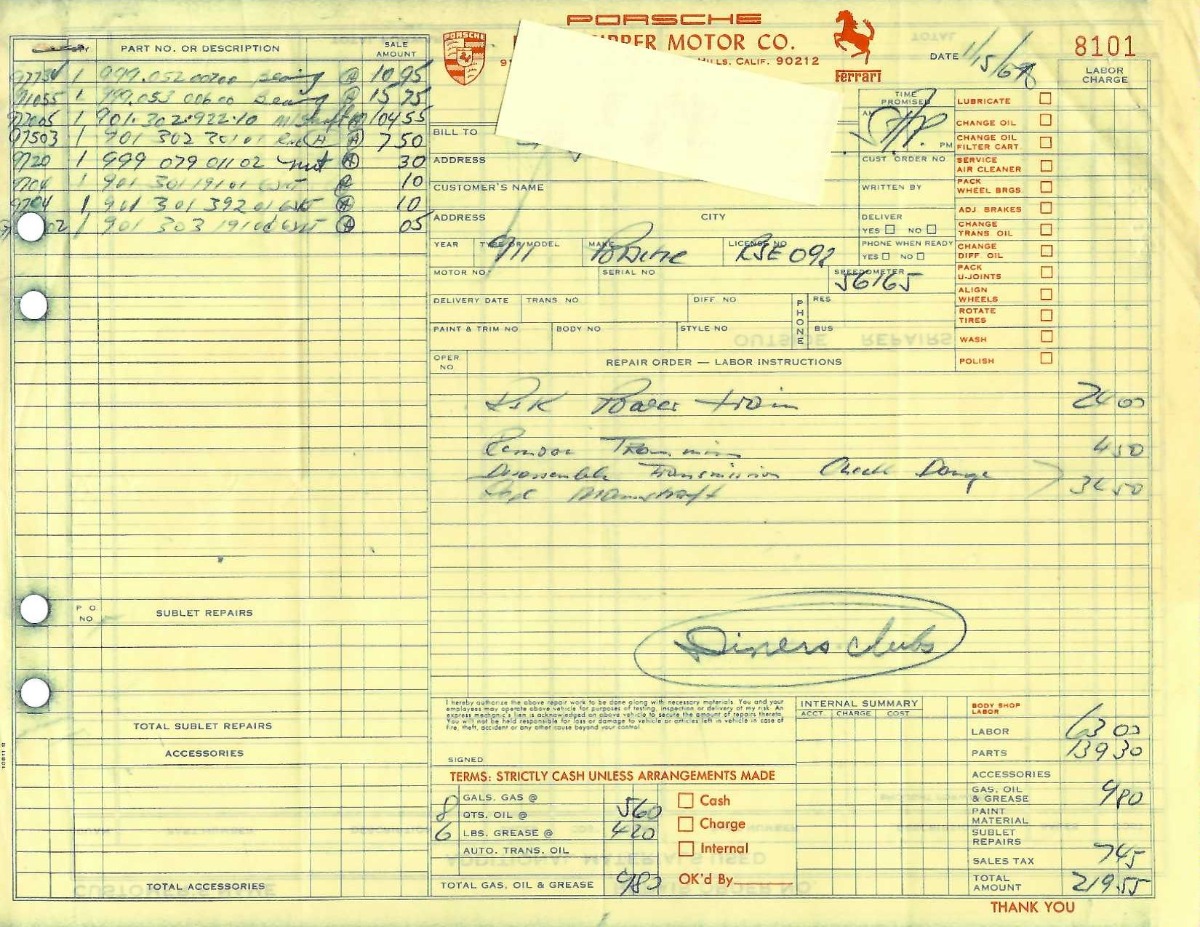 PORSCHE
PORSCHE
MOTOR CO.
HILLS, CALIF. 90212
Ferrari
DATE 1/15/
8101
PART NO. OR DESCRIPTION SALE AMOUNT
1 999.052 00200 Bearing A 10 95
91055 1 999.053 00600 Bearing A 15 75
1 901.302.922.10 M/Shaft A 104 55
97503 1 901 302 301 01 A 7 50
9720 1 999 079 011 02 nut A 30
9704 1 901 301 191 01 A 10
9704 1 901 301 392 01 A 10
02 1 901 303 191 A 05
P O NO SUBLET REPAIRS
TOTAL SUBLET REPAIRS
ACCESSORIES
TOTAL ACCESSORIES
BILL TO
ADDRESS
CUSTOMER'S NAME
ADDRESS CITY
TIME PROMISED
PM
CUST ORDER NO
WRITTEN BY
DELIVER
YES NO
PHONE WHEN READY
YES NO
YEAR TYPE OR MODEL 911 MAKE Porsche LICENSE NO RSE 092
MOTOR NO. SERIAL NO SPEEDOMETER 56165
DELIVERY DATE TRANS NO DIFF NO PHONE RES
PAINT & TRIM NO BODY NO STYLE NO BUS
LABOR CHARGE
LUBRICATE
CHANGE OIL
CHANGE OIL FILTER CART.
SERVICE AIR CLEANER
PACK WHEEL BRGS
ADJ BRAKES
CHANGE TRANS OIL
CHANGE DIFF. OIL
PACK U-JOINTS
ALIGN WHEELS
ROTATE TIRES
WASH
POLISH
OPER NO REPAIR ORDER — LABOR INSTRUCTIONS
R & R Power train 24 00
Transmission 4 50
Disassemble Transmission Check Damage
Mainshaft 34 50
Diners clubs
I hereby authorize the above repair work to be done along with necessary materials. You and your
employees may operate above vehicle for purposes of testing, inspection or delivery at my risk. An
express mechanic's lien is acknowledged on above vehicle to secure the amount of repairs thereto.
You will not be held responsible for loss or damage to vehicle or articles left in vehicle in case of
fire, theft, accident or any other cause beyond your control.
SIGNED
TERMS: STRICTLY CASH UNLESS ARRANGEMENTS MADE
GALS. GAS @
8 QTS. OIL @ 5 60
6 LBS. GREASE @ 4 20
AUTO. TRANS. OIL
TOTAL GAS, OIL & GREASE 9 80
Cash
Charge
Internal
OK'd By
INTERNAL SUMMARY
ACCT. CHARGE COST
BODY SHOP LABOR
LABOR 63 00
PARTS 139 30
ACCESSORIES
GAS, OIL & GREASE 9 80
PAINT MATERIAL
SUBLET REPAIRS
SALES TAX 7 45
TOTAL AMOUNT 219.55
THANK YOU